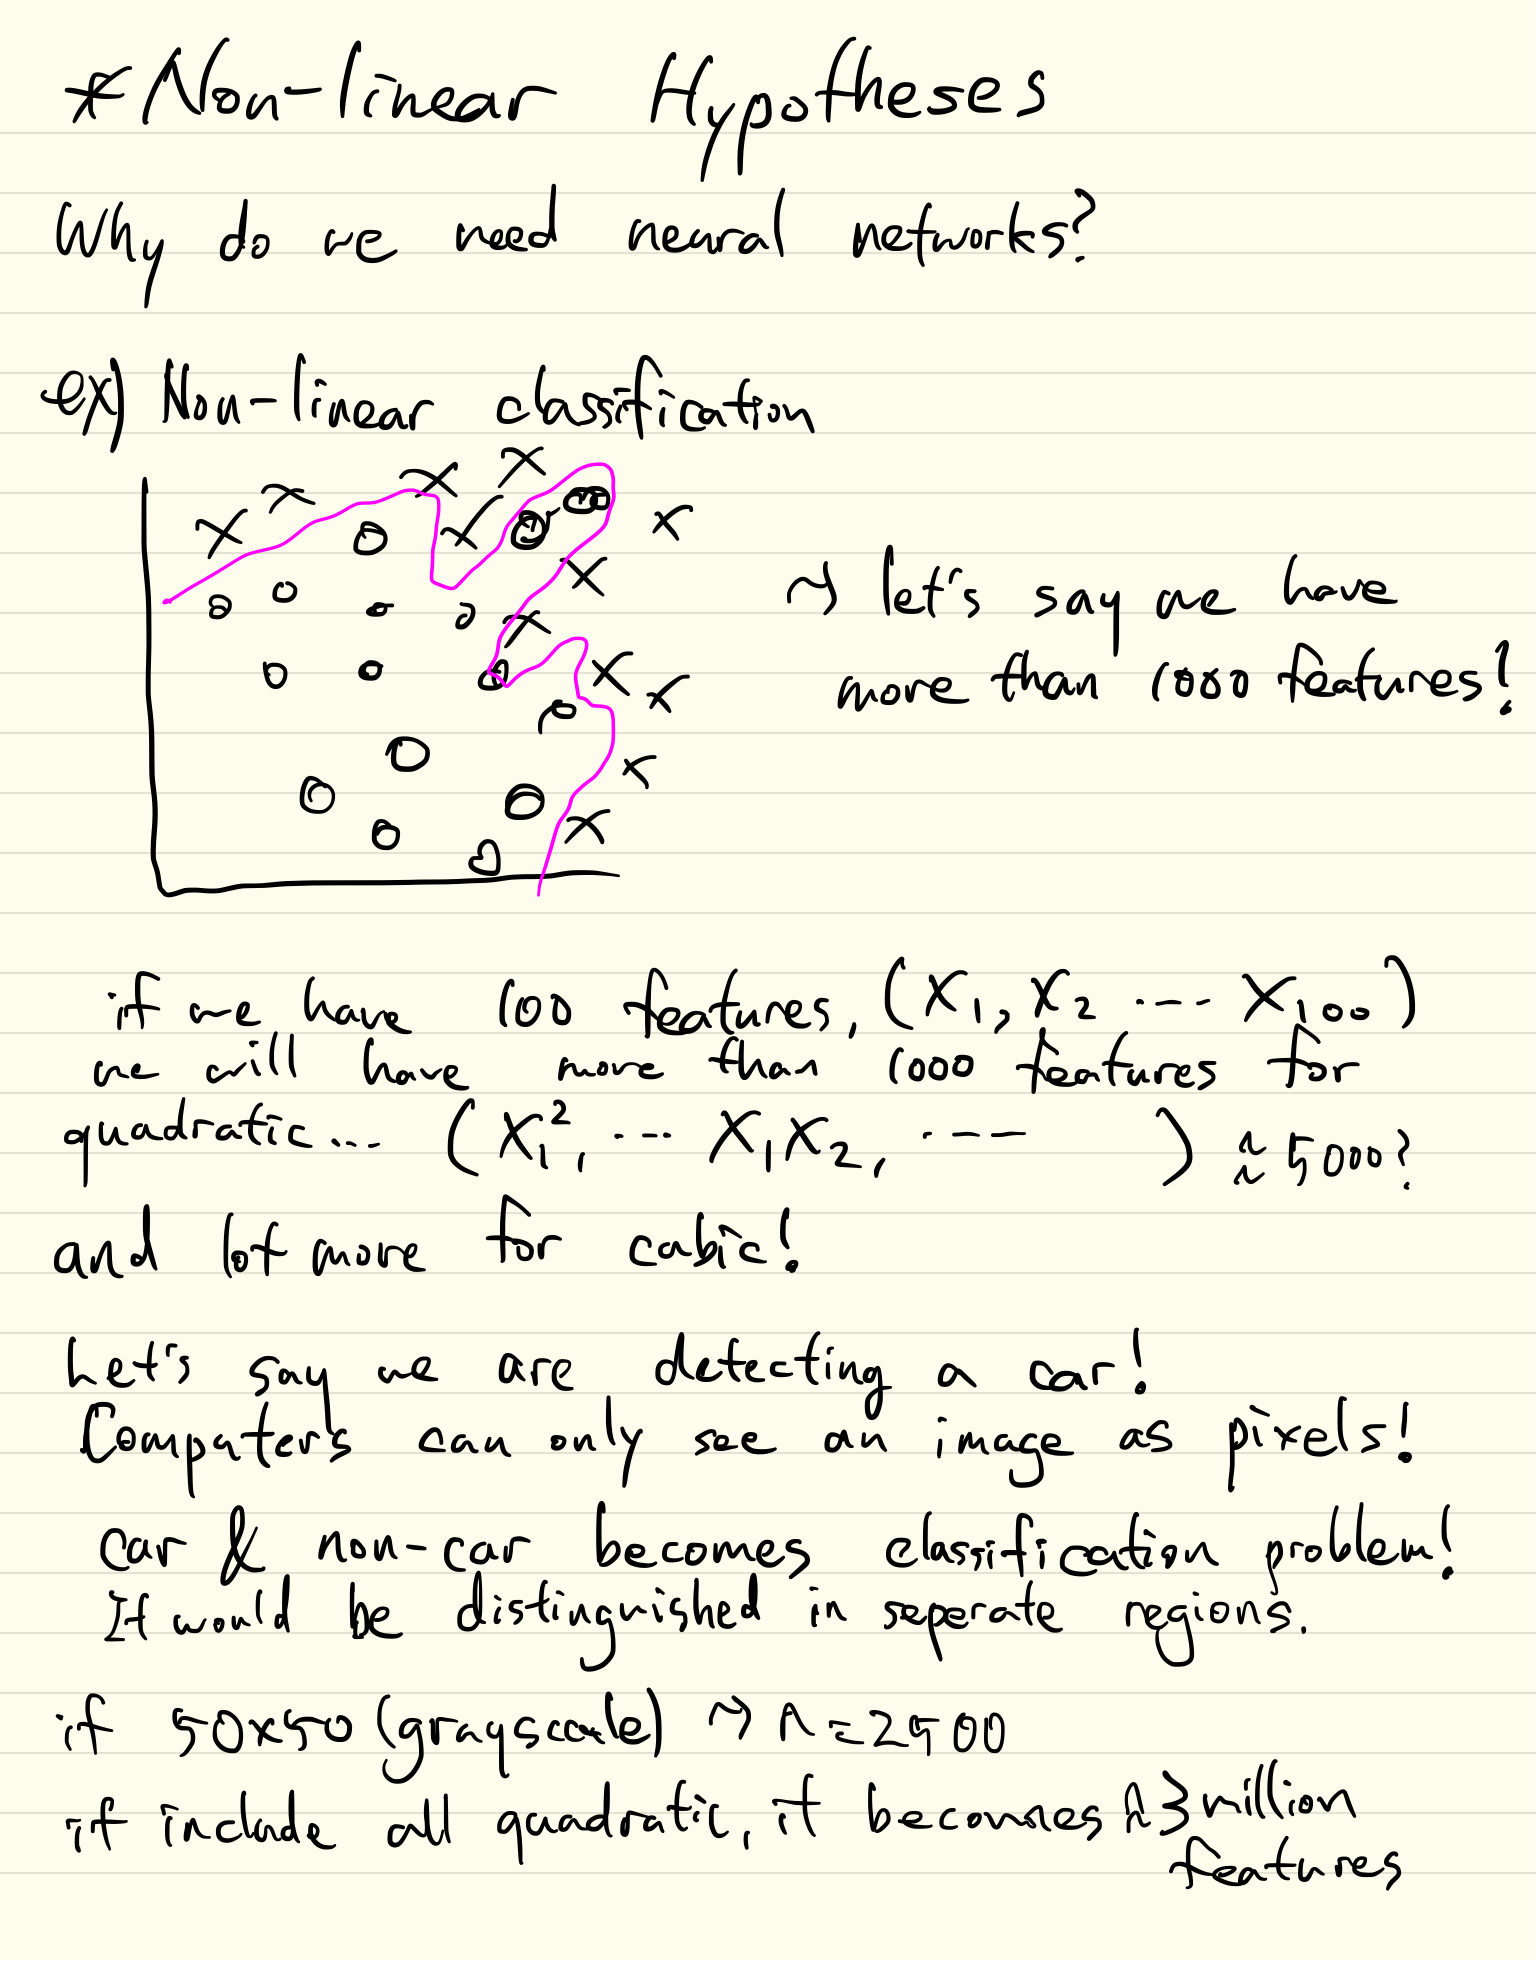 * Non-linear Hypotheses
Why do we need neural networks?
ex) Non-linear classification
~> let's say we have
more than 1000 features!
if we have 100 features, (X₁, X₂ ---- X₁₀₀)
we will have more than 1000 features for
quadratic... (X₁², ---- X₁X₂, ---- ) ≈ 5000?
and lot more for cubic!
Let's say we are detecting a car!
Computers can only see an image as pixels!
car & non-car becomes classification problem!
It would be distinguished in seperate regions.
if 50x50 (grayscale) ~> n=2500
if include all quadratic, it becomes ≈ 3 million
features